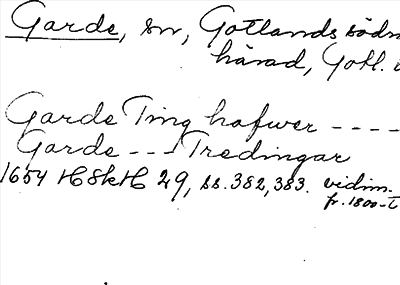 Garde, sn, Gotlands södra
härad, Gotl. l
Garde Ting hafwer ----
Garde --- Tredingar
1654 HSkH 29, ss. 382, 383. vidim.
fr. 1800-t